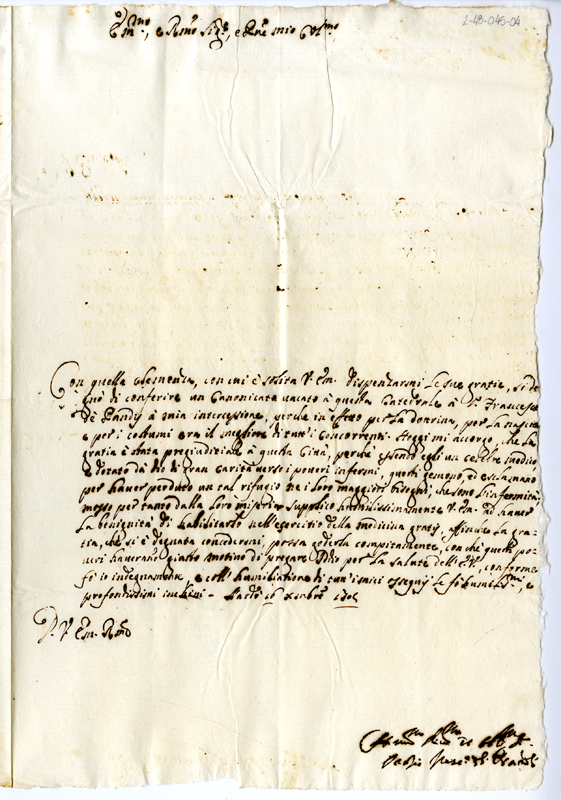 2-48-045-04
Em.mo, e R.mo Sig.re, e P.ne mio Col.mo
Con quella clemenza, con cui è solita V. Em. dispenzarmi le sue gratie, si de
gnò di conferire un Canonicato vacato à questa Catedrale à D. Francesco
de Pandis à mia intercessione, perche in effetto per la dottrina, per la nascita
e per i costumi era il migliore di tant'i concorrenti. Hoggi mi accorgo, che la
gratia è stata pregiuditiale à questa Città, perche essendo egli un celebre medico,
e dotato da Dio di gran carità verso i poveri infermi, questi gemono, et esclamano
per haver perduto un tal rifugio ne i loro maggiori bisogni, che sono l'infermità,
mosso per tanto dalla loro miseria supplico humilissimamente V. Em. ad haver
la benignità di habilitarlo nell'esercitio della medicina gratis, affinche la gra-
tia, che si è degnata concedermi, possa goderla compitamente, con che questi po-
veri haveranno giusto motivo di pregare Iddio per la salute dell'E.V., conforme
fò io indegnamente, e coll'humiliatione di tant'i miei ossequij le fò humiliss.mi, e
profondissimi inchini. 16 Xmbre
D. V. Em. R.ma